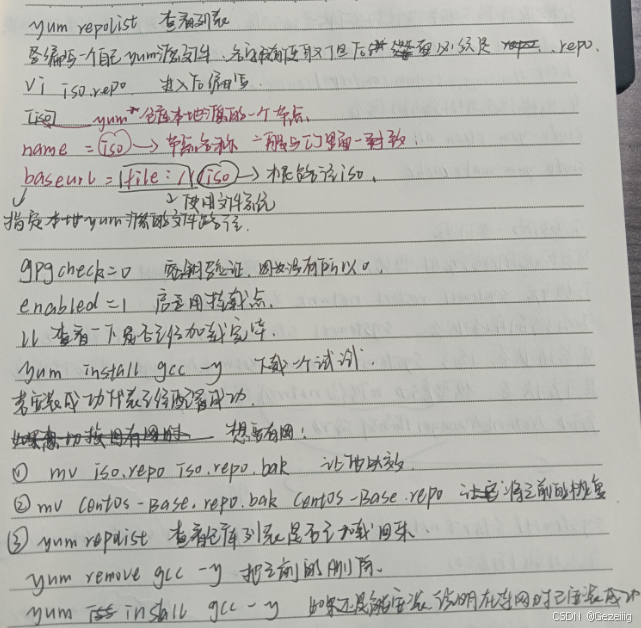 yum repolist 查看列表
要编写一个自己yum源文件,名字随便取,但后缀必须是.repo.
vi iso.repo 进入后编写.
[iso] yum仓库本地源的一个节点.
name = iso → 节点名称 一般与[]里面一对应.
baseurl = file:///iso → 根目录iso.
使用文件系统
指定本地yum源的文件路径.
gpgcheck=0 密钥验证,因为没有所以0.
enabled=1 启用挂载点.
ll 查看一下是否已经加载完毕.
yum install gcc -y 下载一个试试.
若安装成功代表已经配置成功.
想要有网:
① mv iso.repo iso.repo.bak 让他失效
② mv Centos-Base.repo.bak Centos-Base.repo 将之前的恢复
③ yum repolist 查看仓库列表是否已加载回来.
yum remove gcc -y 把之前的删除.
yum install gcc -y 如果还是能安装 说明在连网时已安装成功
CSDN @Gezeiiig